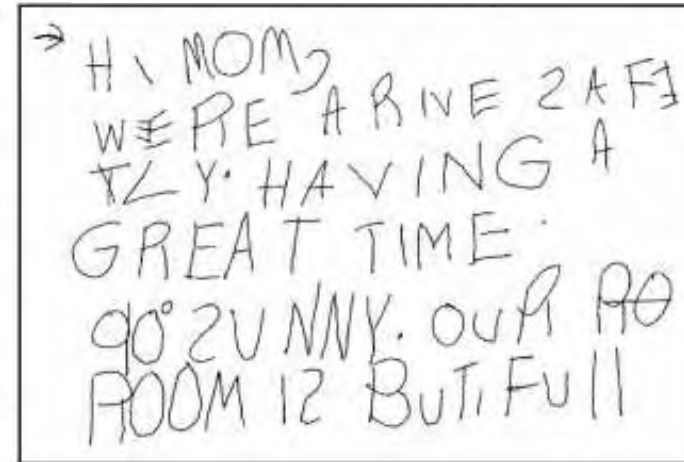 → HI MOM,
WE'RE ARIVE SAFE
TLY. HAVING A
GREAT TIME.
90° SUNNY. OUR RO
ROOM IS BUTIFUll